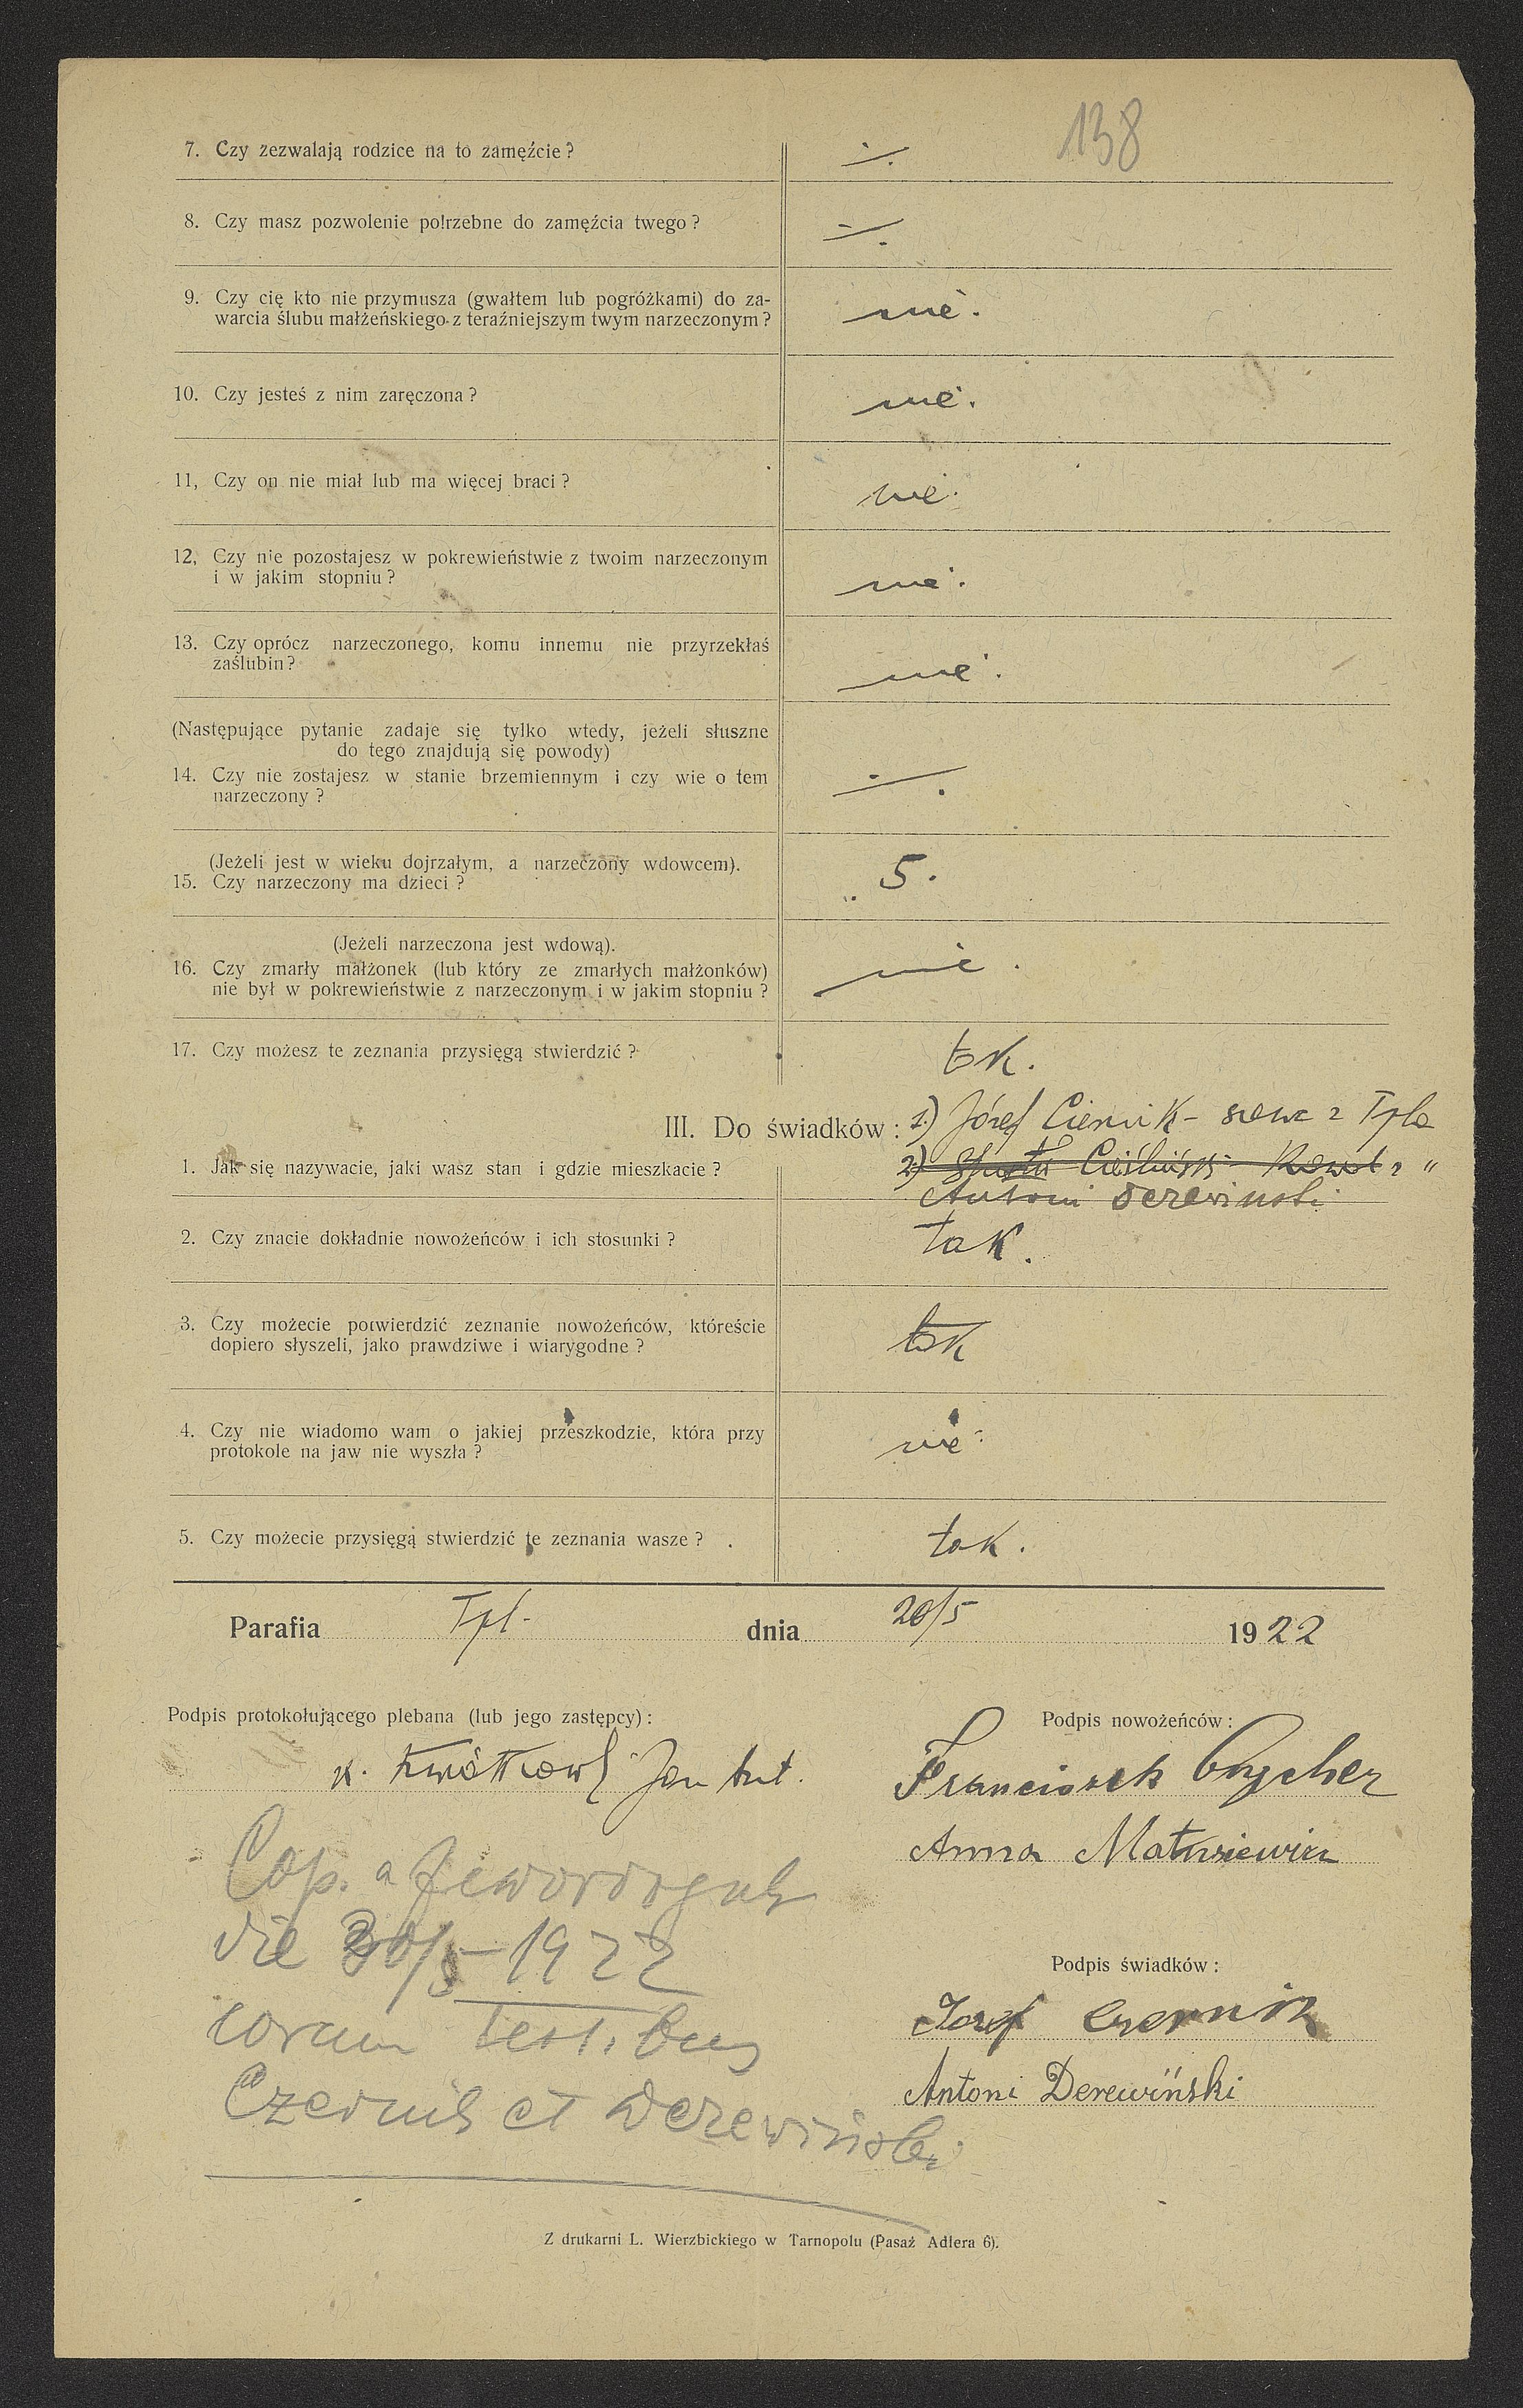 138
7. Czy zezwalają rodzice na to zamęźcie? ⁒
8. Czy masz pozwolenie potrzebne do zamęźcia twego? ⁒
9. Czy cię kto nie przymusza (gwałtem lub pogróżkami) do za-
warcia ślubu małżeńskiego z teraźniejszym twym narzeczonym? nie.
10. Czy jesteś z nim zaręczona? nie.
11, Czy on nie miał lub ma więcej braci? nie.
12, Czy nie pozostajesz w pokrewieństwie z twoim narzeczonym
i w jakim stopniu? nie.
13. Czy oprócz narzeczonego, komu innemu nie przyrzekłaś
zaślubin? nie.
(Następujące pytanie zadaje się tylko wtedy, jeżeli słuszne
do tego znajdują się powody)
14. Czy nie zostajesz w stanie brzemiennym i czy wie o tem
narzeczony? ⁒
(Jeżeli jest w wieku dojrzałym, a narzeczony wdowcem).
15. Czy narzeczony ma dzieci? 5.
(Jeżeli narzeczona jest wdową).
16. Czy zmarły małżonek (lub który ze zmarłych małżonków)
nie był w pokrewieństwie z narzeczonym i w jakim stopniu? nie.
17. Czy możesz te zeznania przysięgą stwierdzić? tak.
III. Do świadków: 1) Józef Ciernik - szewc z Tpla
1. Jak się nazywacie, jaki wasz stan i gdzie mieszkacie? 2) Cieśliński z "
Antoni Derewinski
2. Czy znacie dokładnie nowożeńców i ich stosunki? tak.
3. Czy możecie potwierdzić zeznanie nowożeńców, któreście
dopiero słyszeli, jako prawdziwe i wiarygodne? tak
4. Czy nie wiadomo wam o jakiej przeszkodzie, która przy
protokole na jaw nie wyszła? nie
5. Czy możecie przysięgą stwierdzić te zeznania wasze? tak.
Parafia Tpl. dnia 20/5 1922
Podpis protokołującego plebana (lub jego zastępcy):
Podpis nowożeńców:
x. Jan Ant.
Franciszek
Anna Matusiewicz
Cop. a
die 30/5 - 1922
coram testibus
Czernik et Derewiński
Podpis świadków:
Józef Czernik
Antoni Derewiński
Z drukarni L. Wierzbickiego w Tarnopolu (Pasaż Adlera 6).